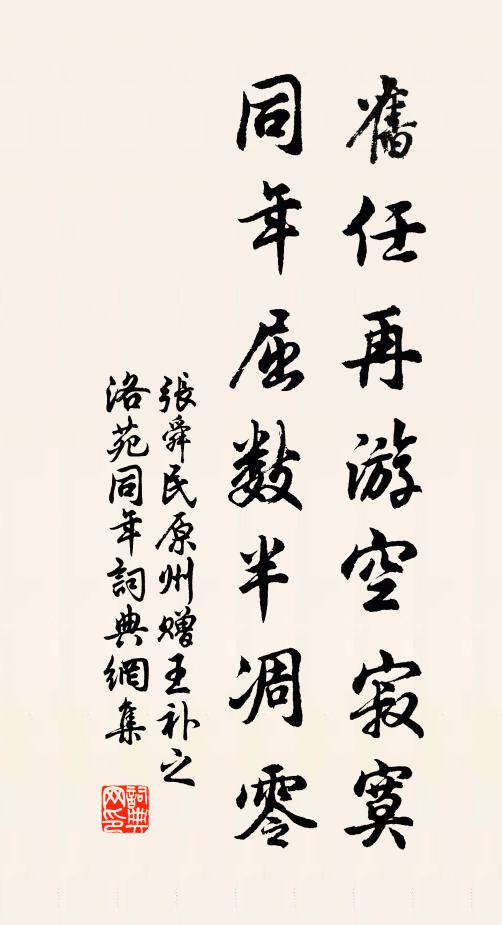 舊任再游空寂寞
同年屈数半凋零
張舜民原州赠王补之
洛苑同年詞典網集
詞典
网印